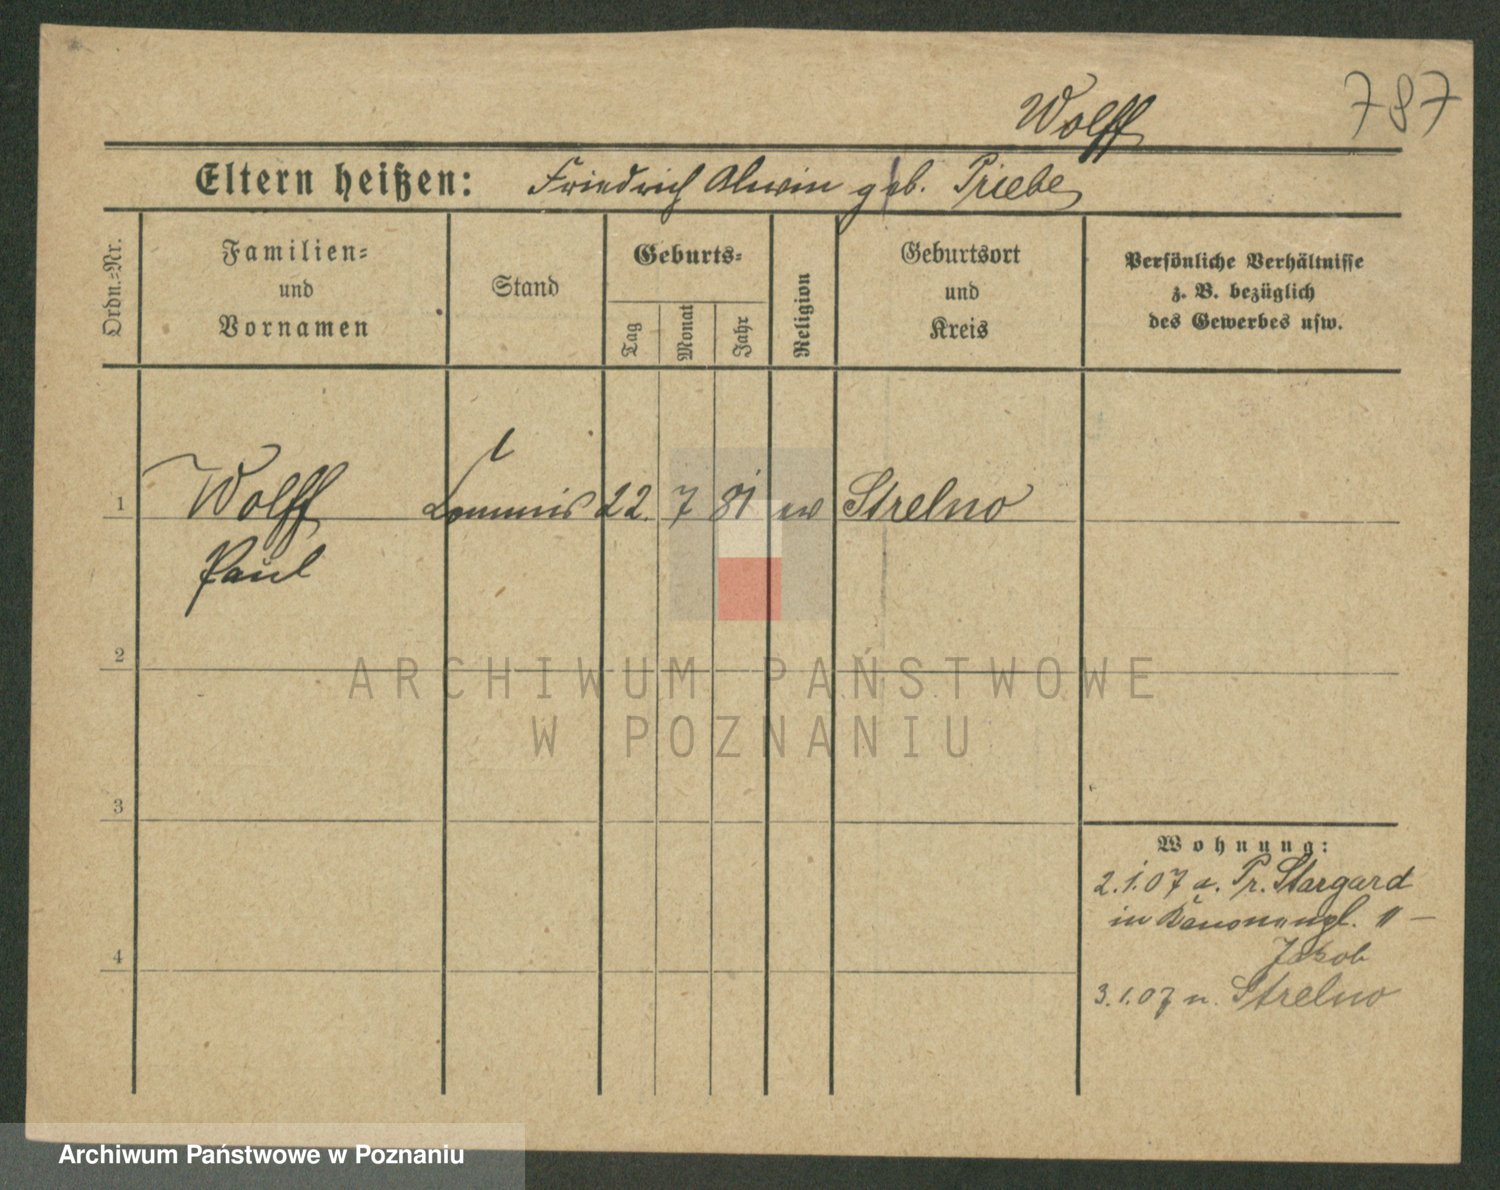 787
Wolff
Eltern heißen: Friedrich Alwin geb. Priebe
Ordn.=Nr.
Familien=
und
Vornamen
Stand
Geburts=
Tag
Monat
Jahr
Religion
Geburtsort
und
Kreis
Persönliche Verhältnisse
z. B. bezüglich
des Gewerbes usw.
1 Wolff Commis 22. 7 81 ev Strelno
Paul
2
3
4
Wohnung:
2.1.07 a. Pr. Stargard
in
Jakob
3.1.07 n. Strelno
ARCHIWUM PAŃSTWOWE
W POZNANIU
Archiwum Państwowe w Poznaniu